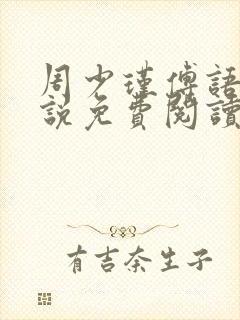 周少瑾傅語
說免費閱讀
有吉奈生子